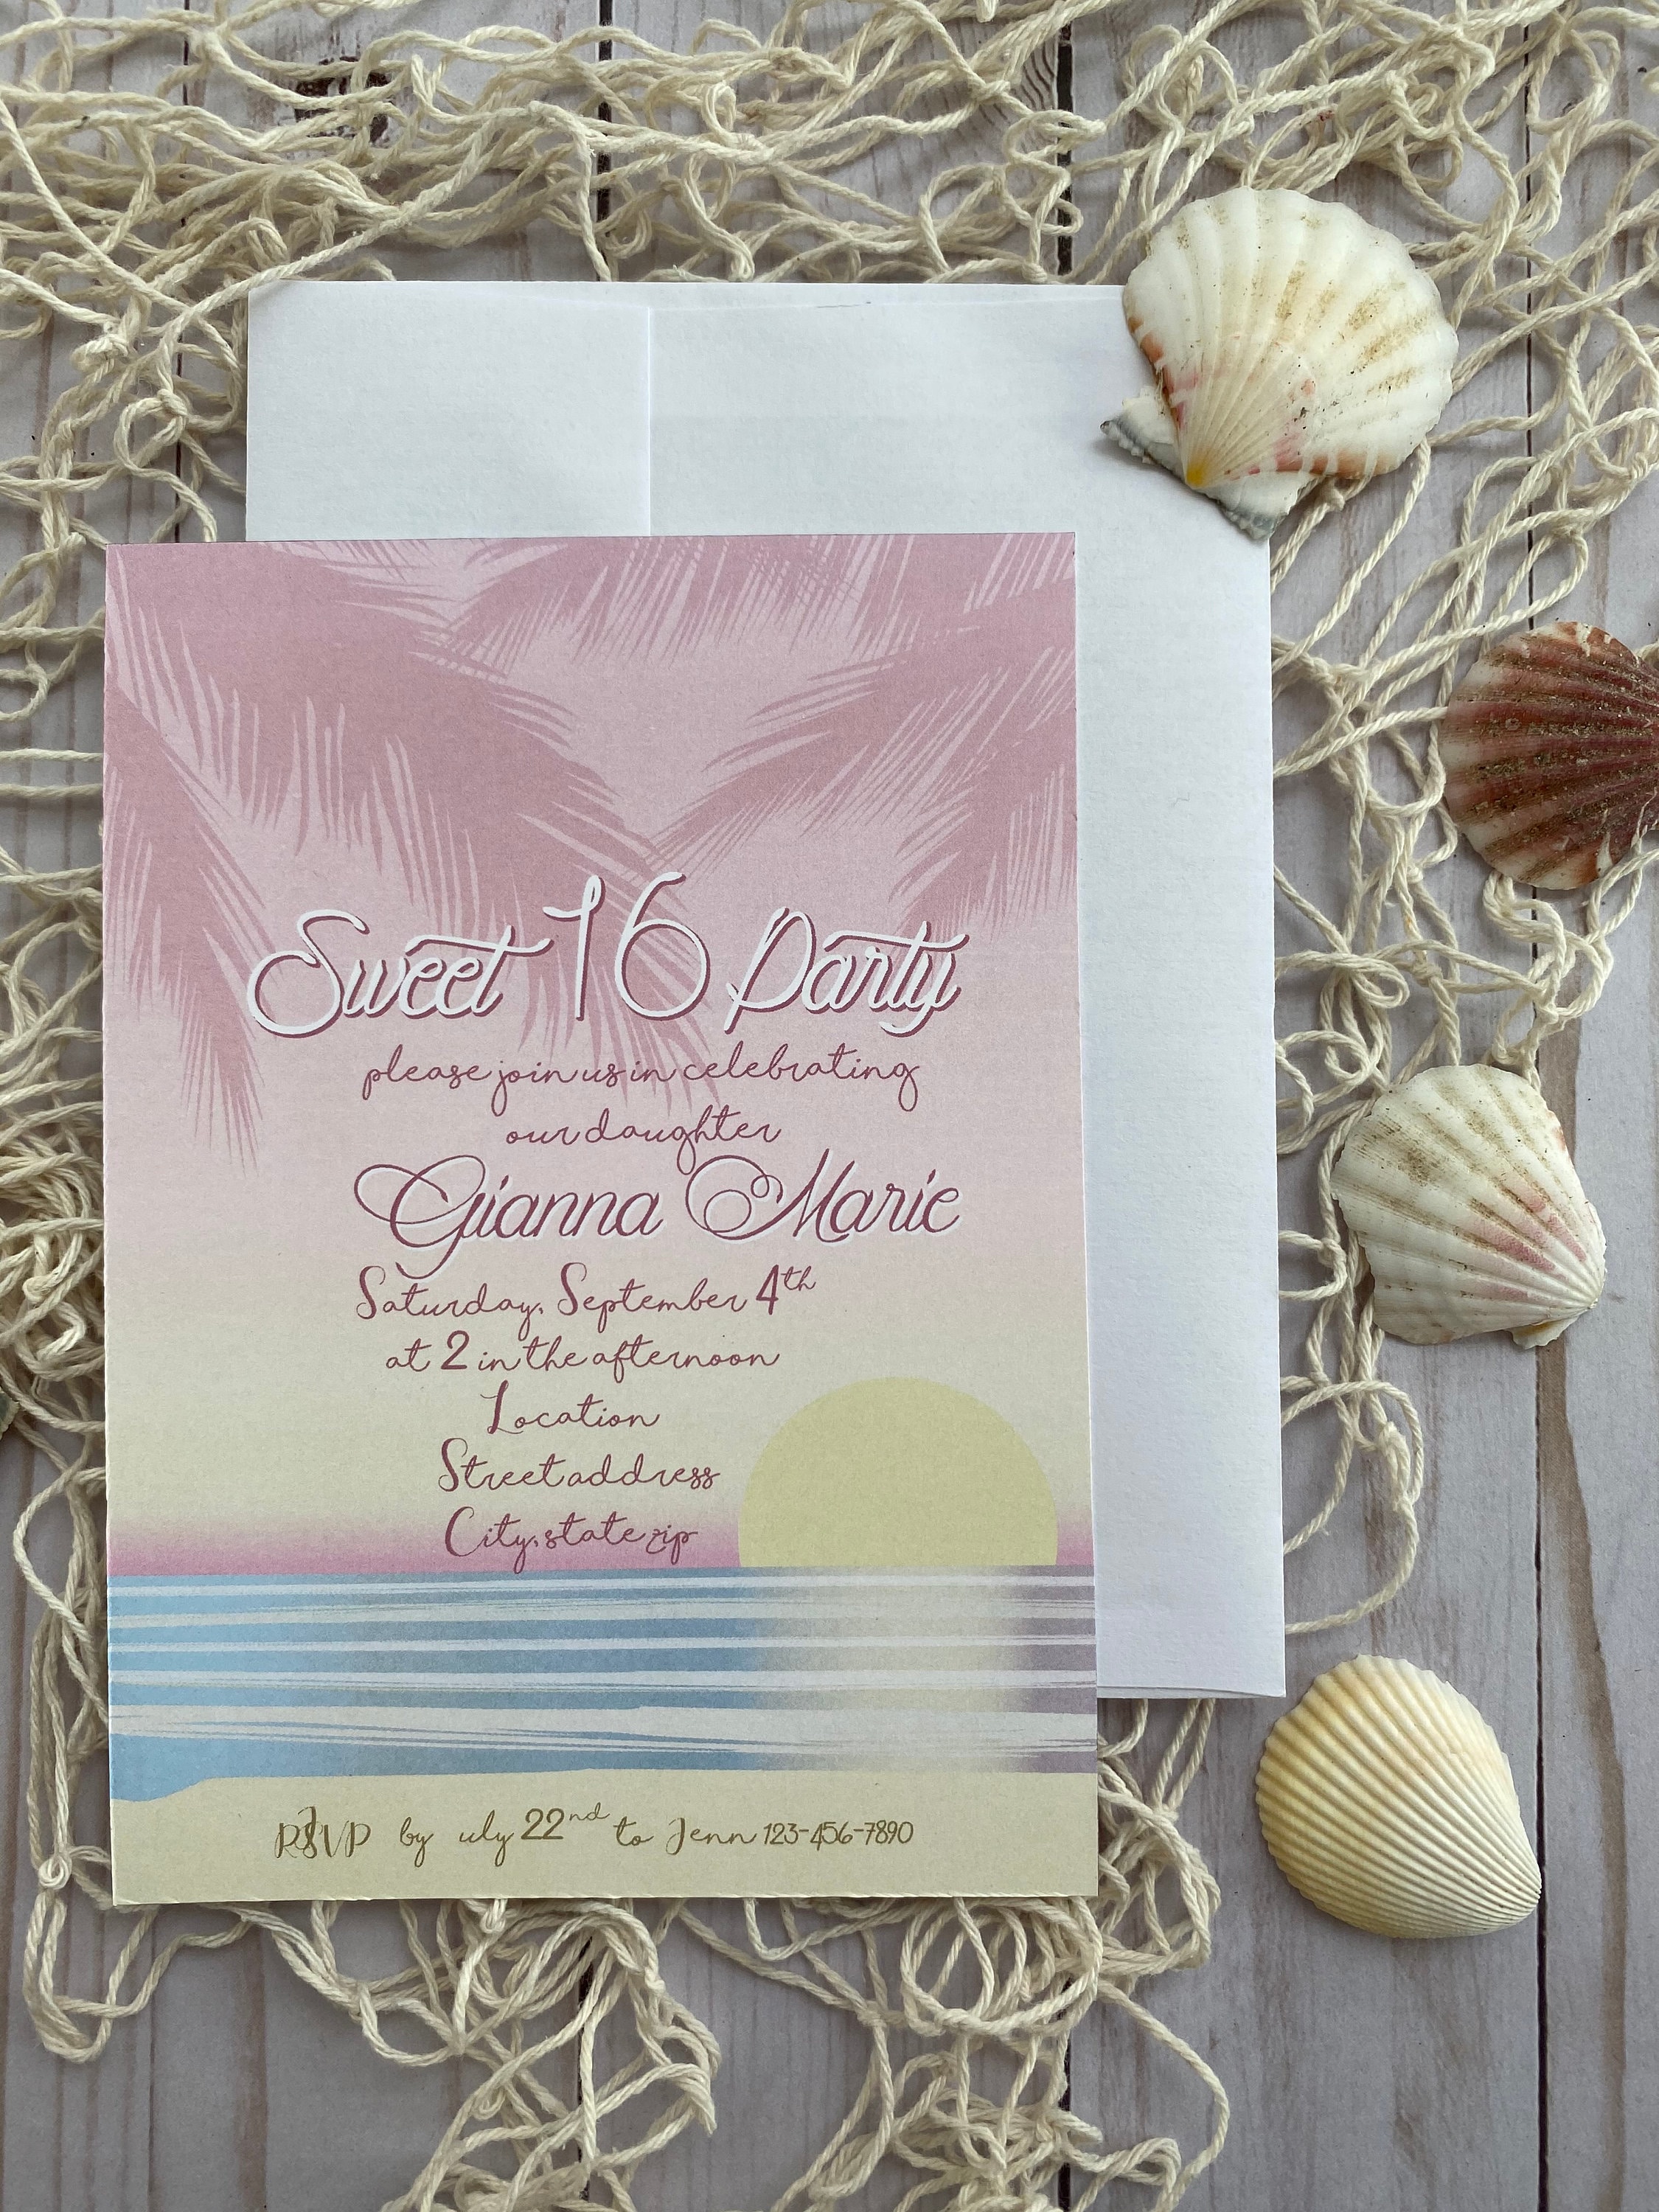 Sweet 16 Party
please join us in celebrating
our daughter
Gianna Marie
Saturday, September 4th
at 2 in the afternoon
Location
Street address
City, state zip
RSVP by July 22nd to Jenn 123-456-7890